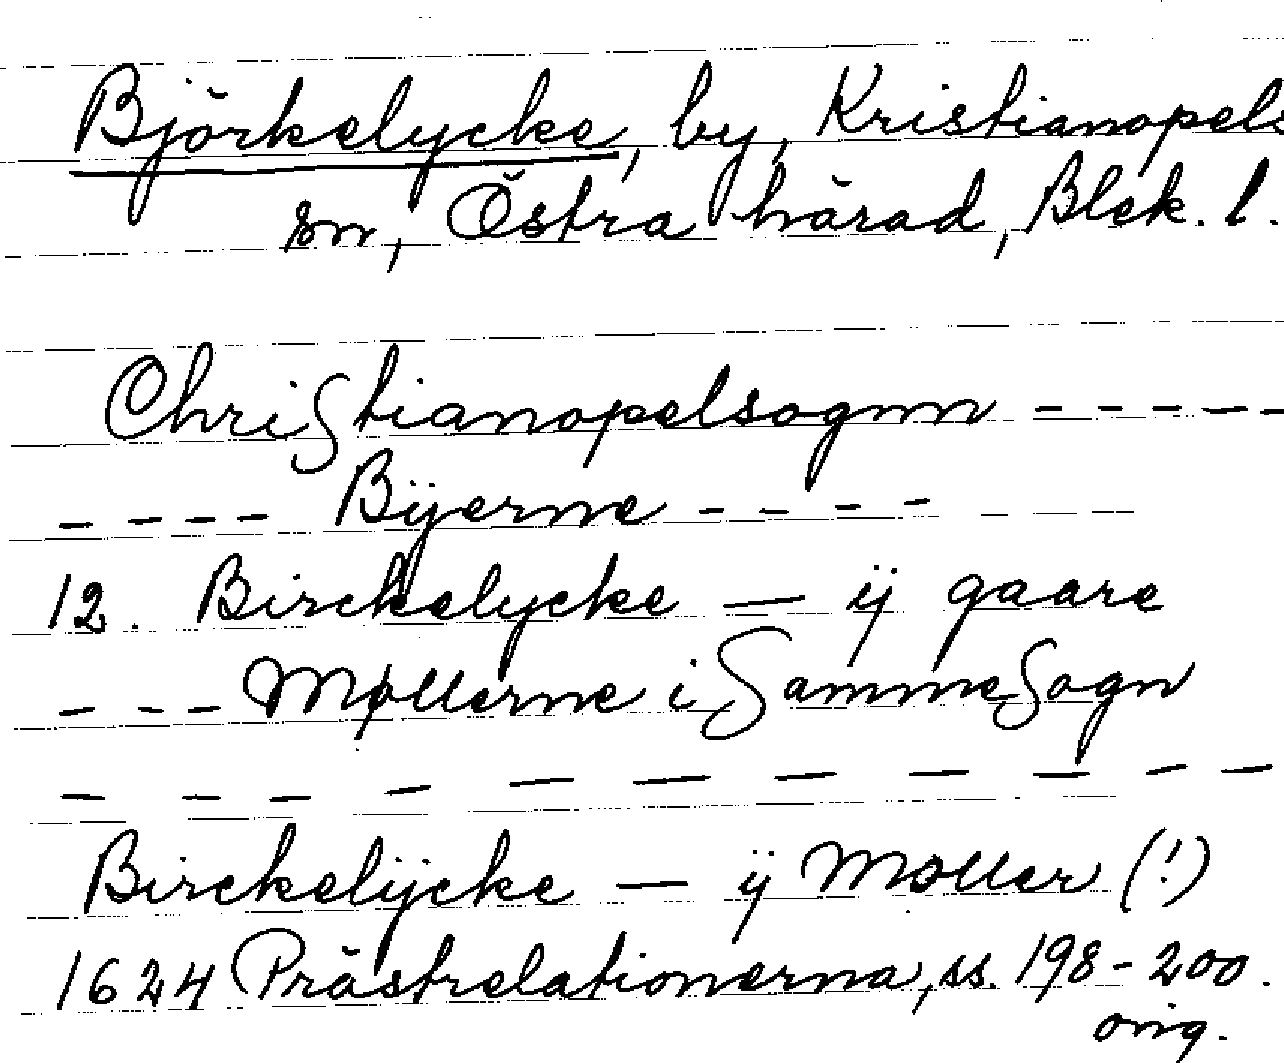 Björkelycke, by, Kristianopels
sn, Östra härad, Blek. l.
Christianopelsognn - - - - -
- - - - Bÿerne - - - -
12. Birckelycke — ij gaare
- - - Møllerne i Samme Sogn
— — — — — — — — — — —
Birckelÿcke — ij Møller (!)
1624 Prästrelationerna, ss. 198-200.
orig.